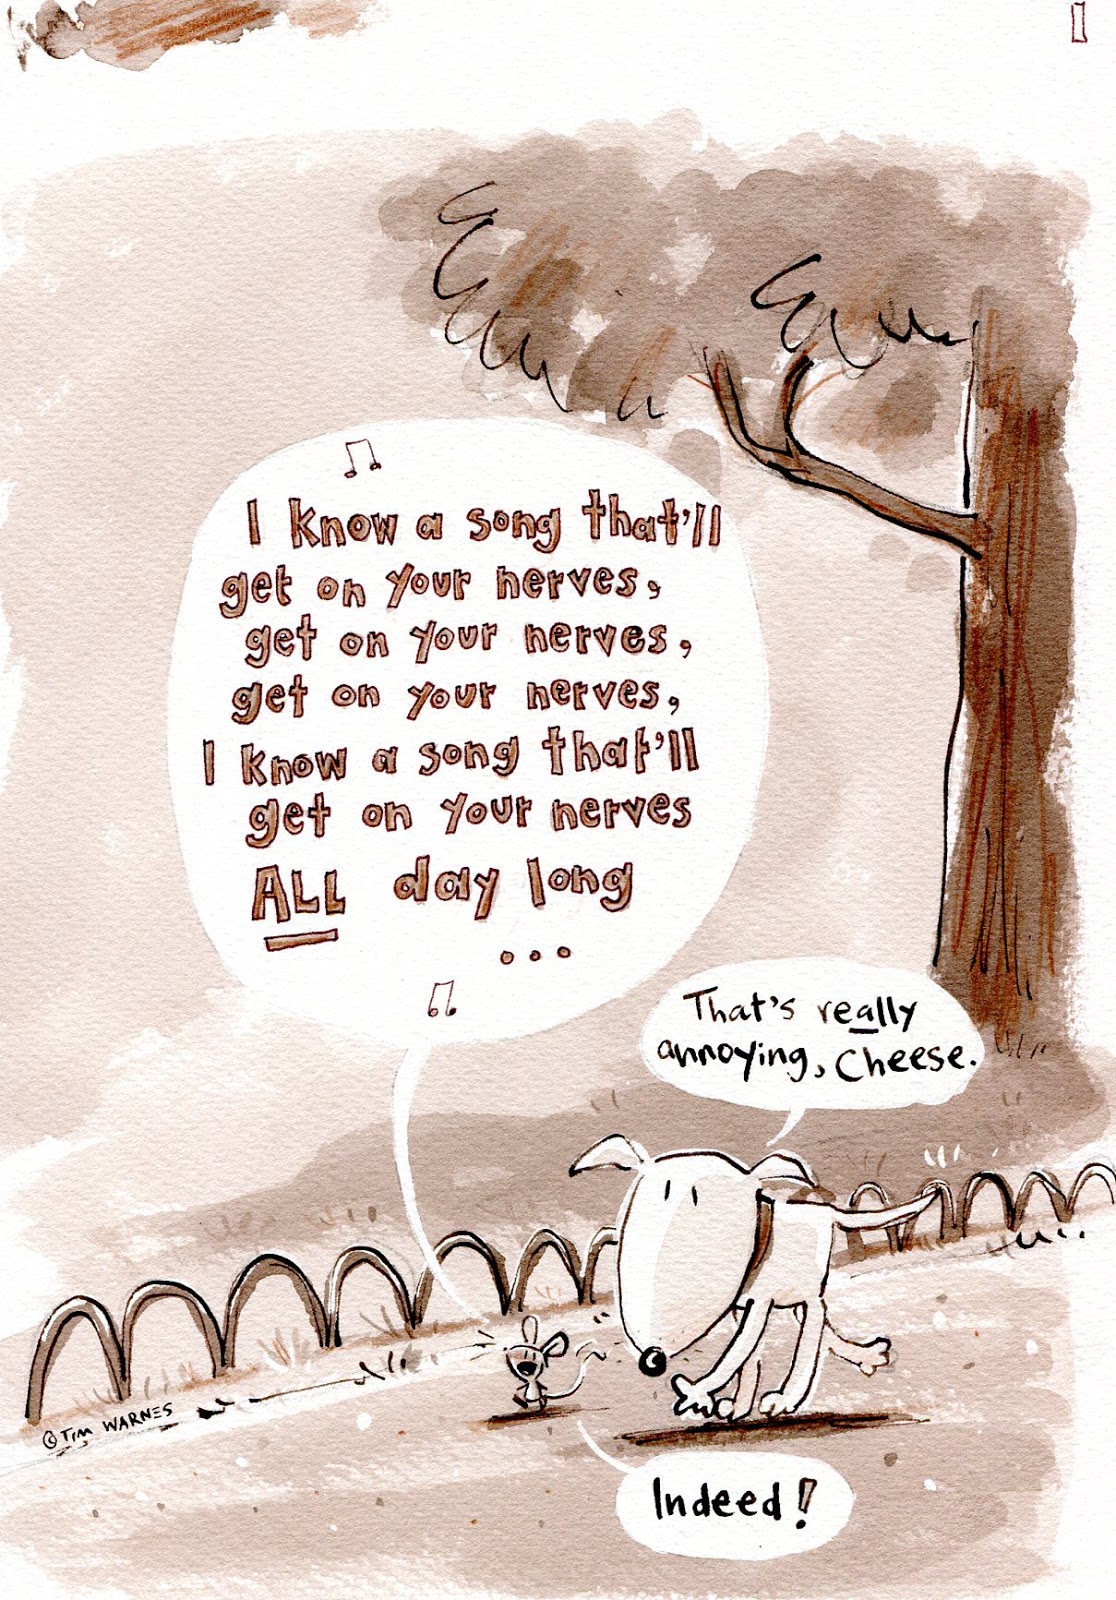 I know a song that'll
get on your nerves,
get on your nerves,
get on your nerves,
I know a song that'll
get on your nerves
ALL day long
...
That's really
annoying, Cheese.
Indeed!
© TIM WARNES